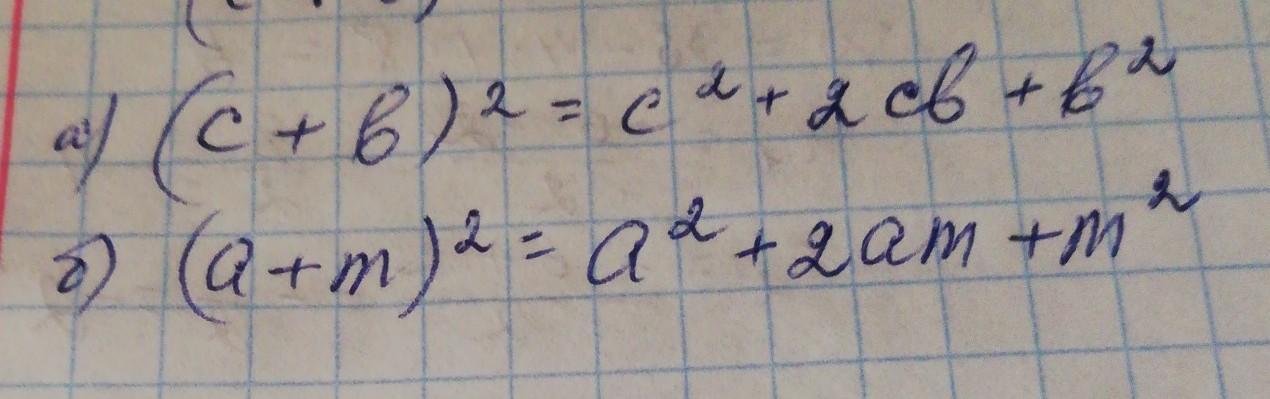 а) (c + b)² = c² + 2cb + b²
б) (a + m)² = a² + 2am + m²